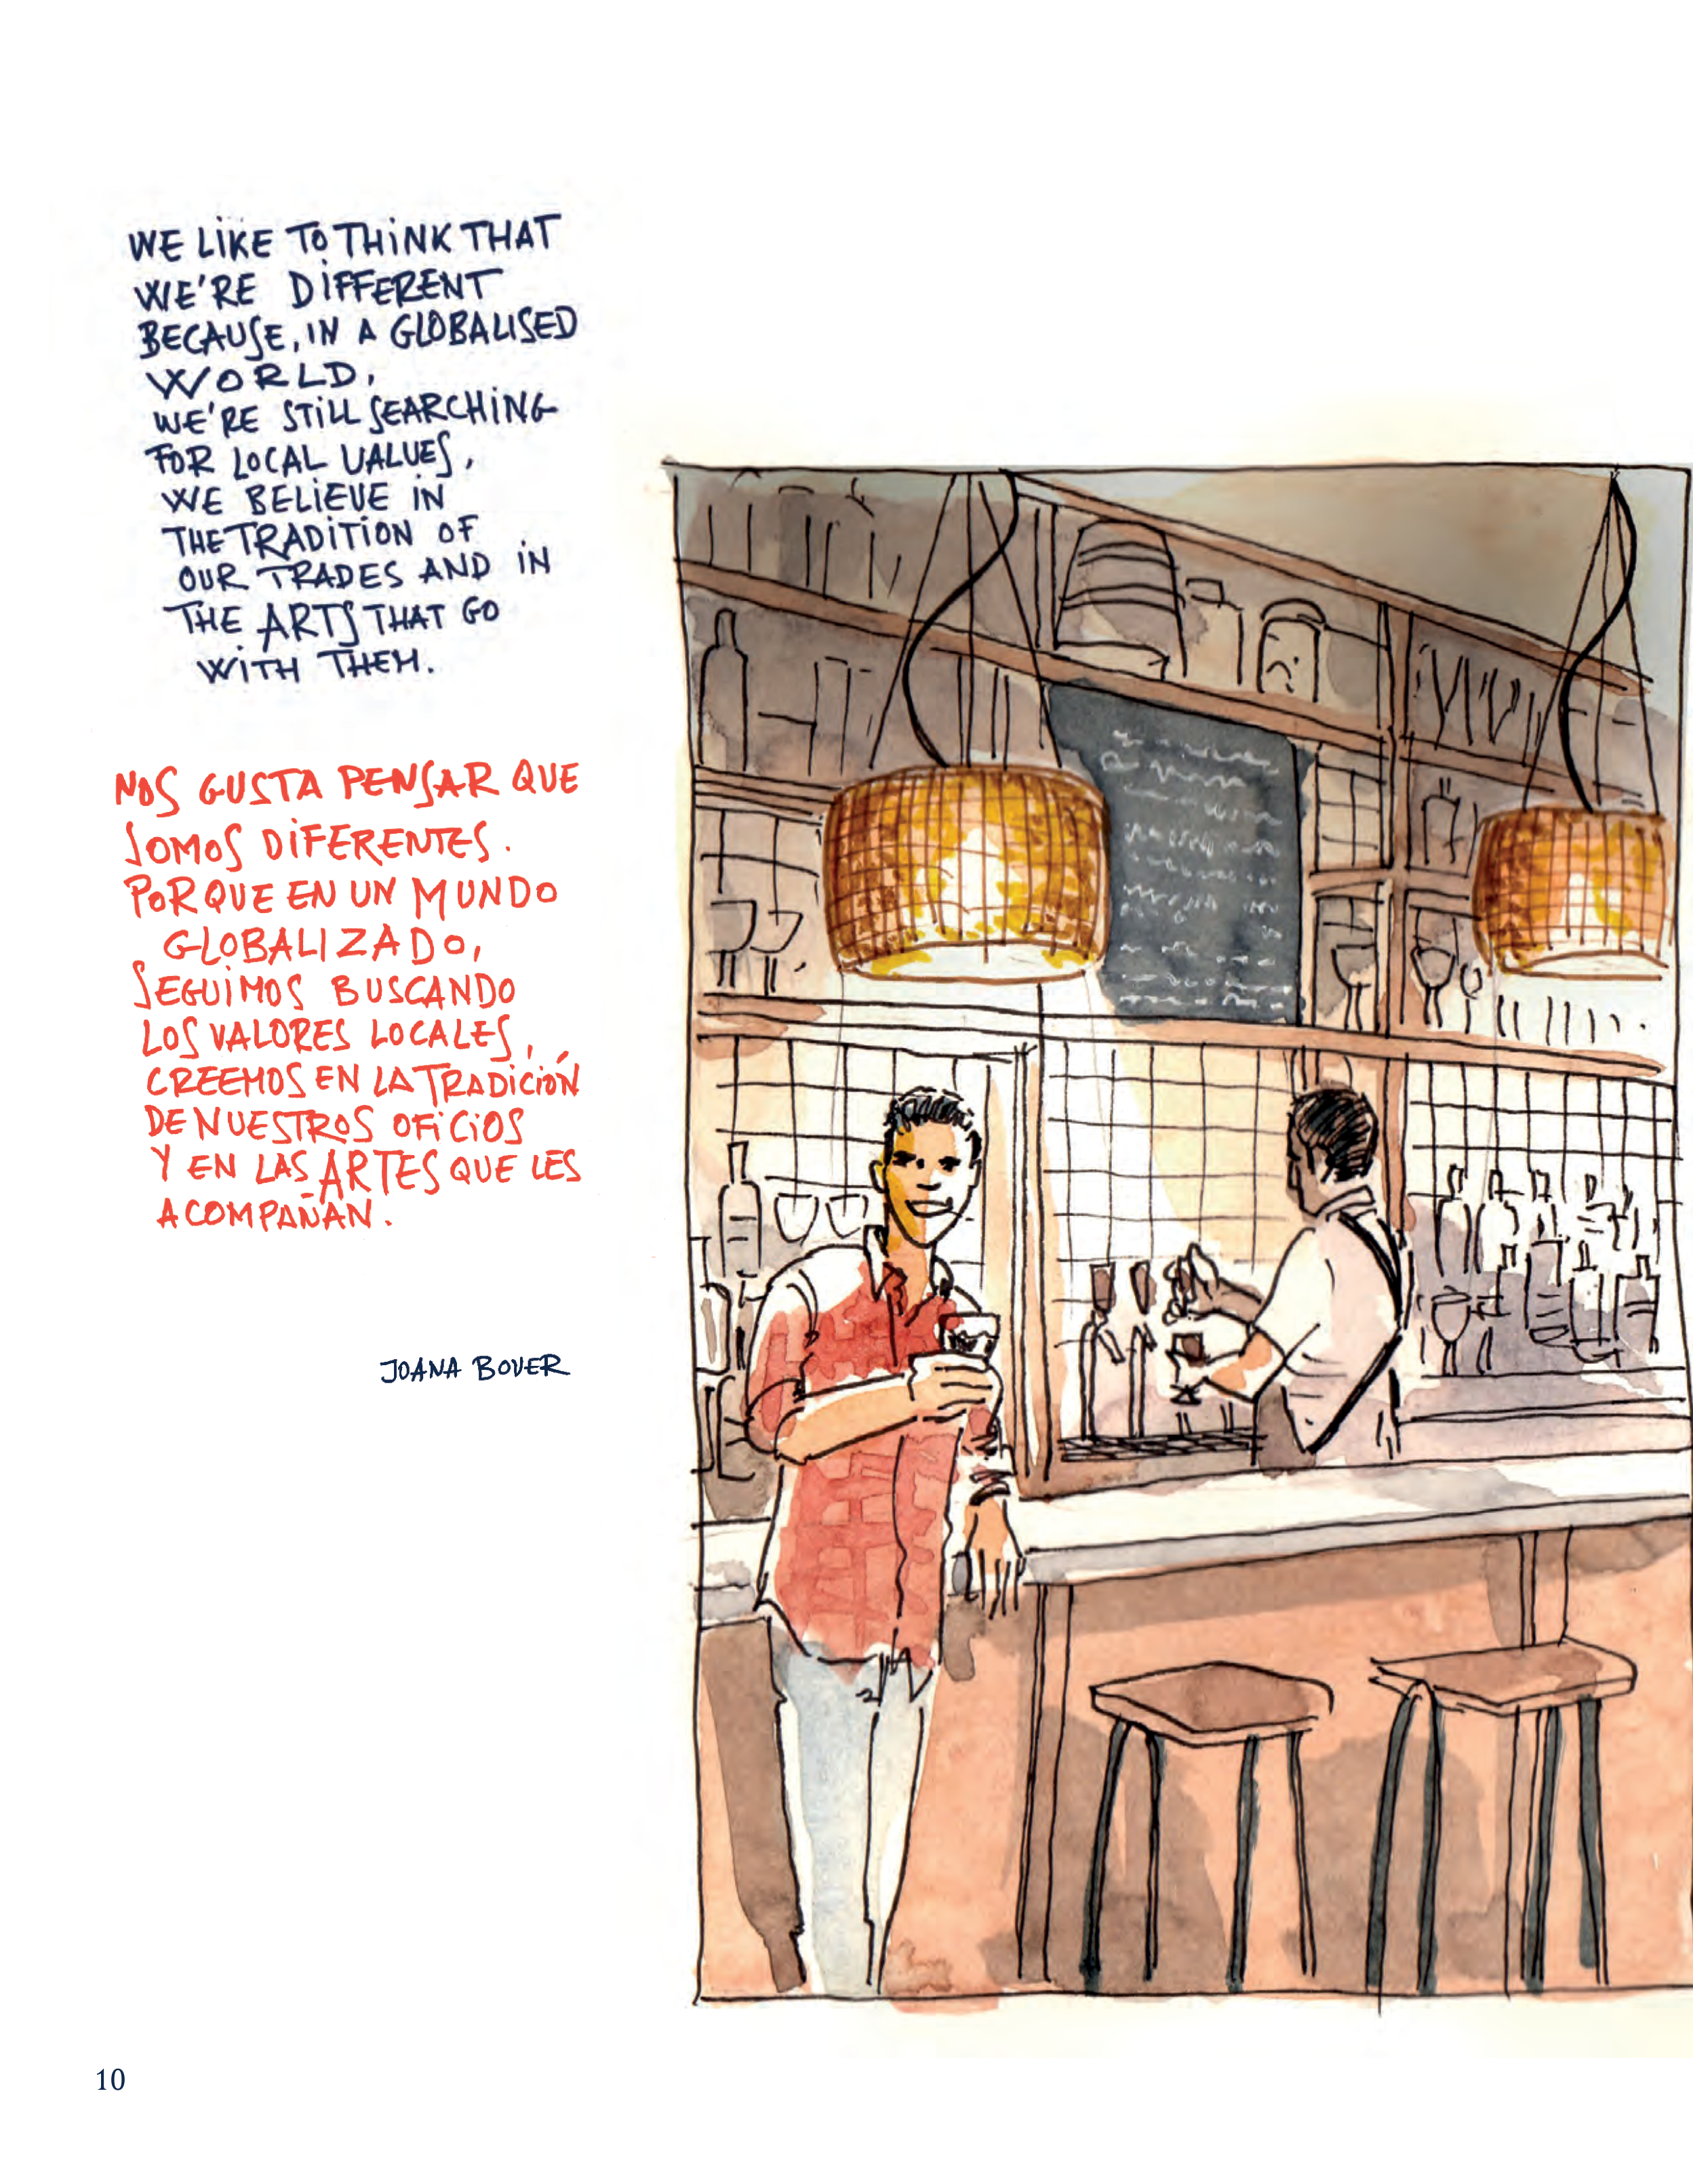 WE LIKE TO THINK THAT
WE'RE DIFFERENT
BECAUSE, IN A GLOBALISED
WORLD,
WE'RE STILL SEARCHING
FOR LOCAL VALUES,
WE BELIEVE IN
THE TRADITION OF
OUR TRADES AND IN
THE ARTS THAT GO
WITH THEM.
NOS GUSTA PENSAR QUE
SOMOS DIFERENTES.
PORQUE EN UN MUNDO
GLOBALIZADO,
SEGUIMOS BUSCANDO
LOS VALORES LOCALES,
CREEMOS EN LA TRADICIÓN
DE NUESTROS OFICIOS
Y EN LAS ARTES QUE LES
ACOMPAÑAN.
JOANA BOVER
10